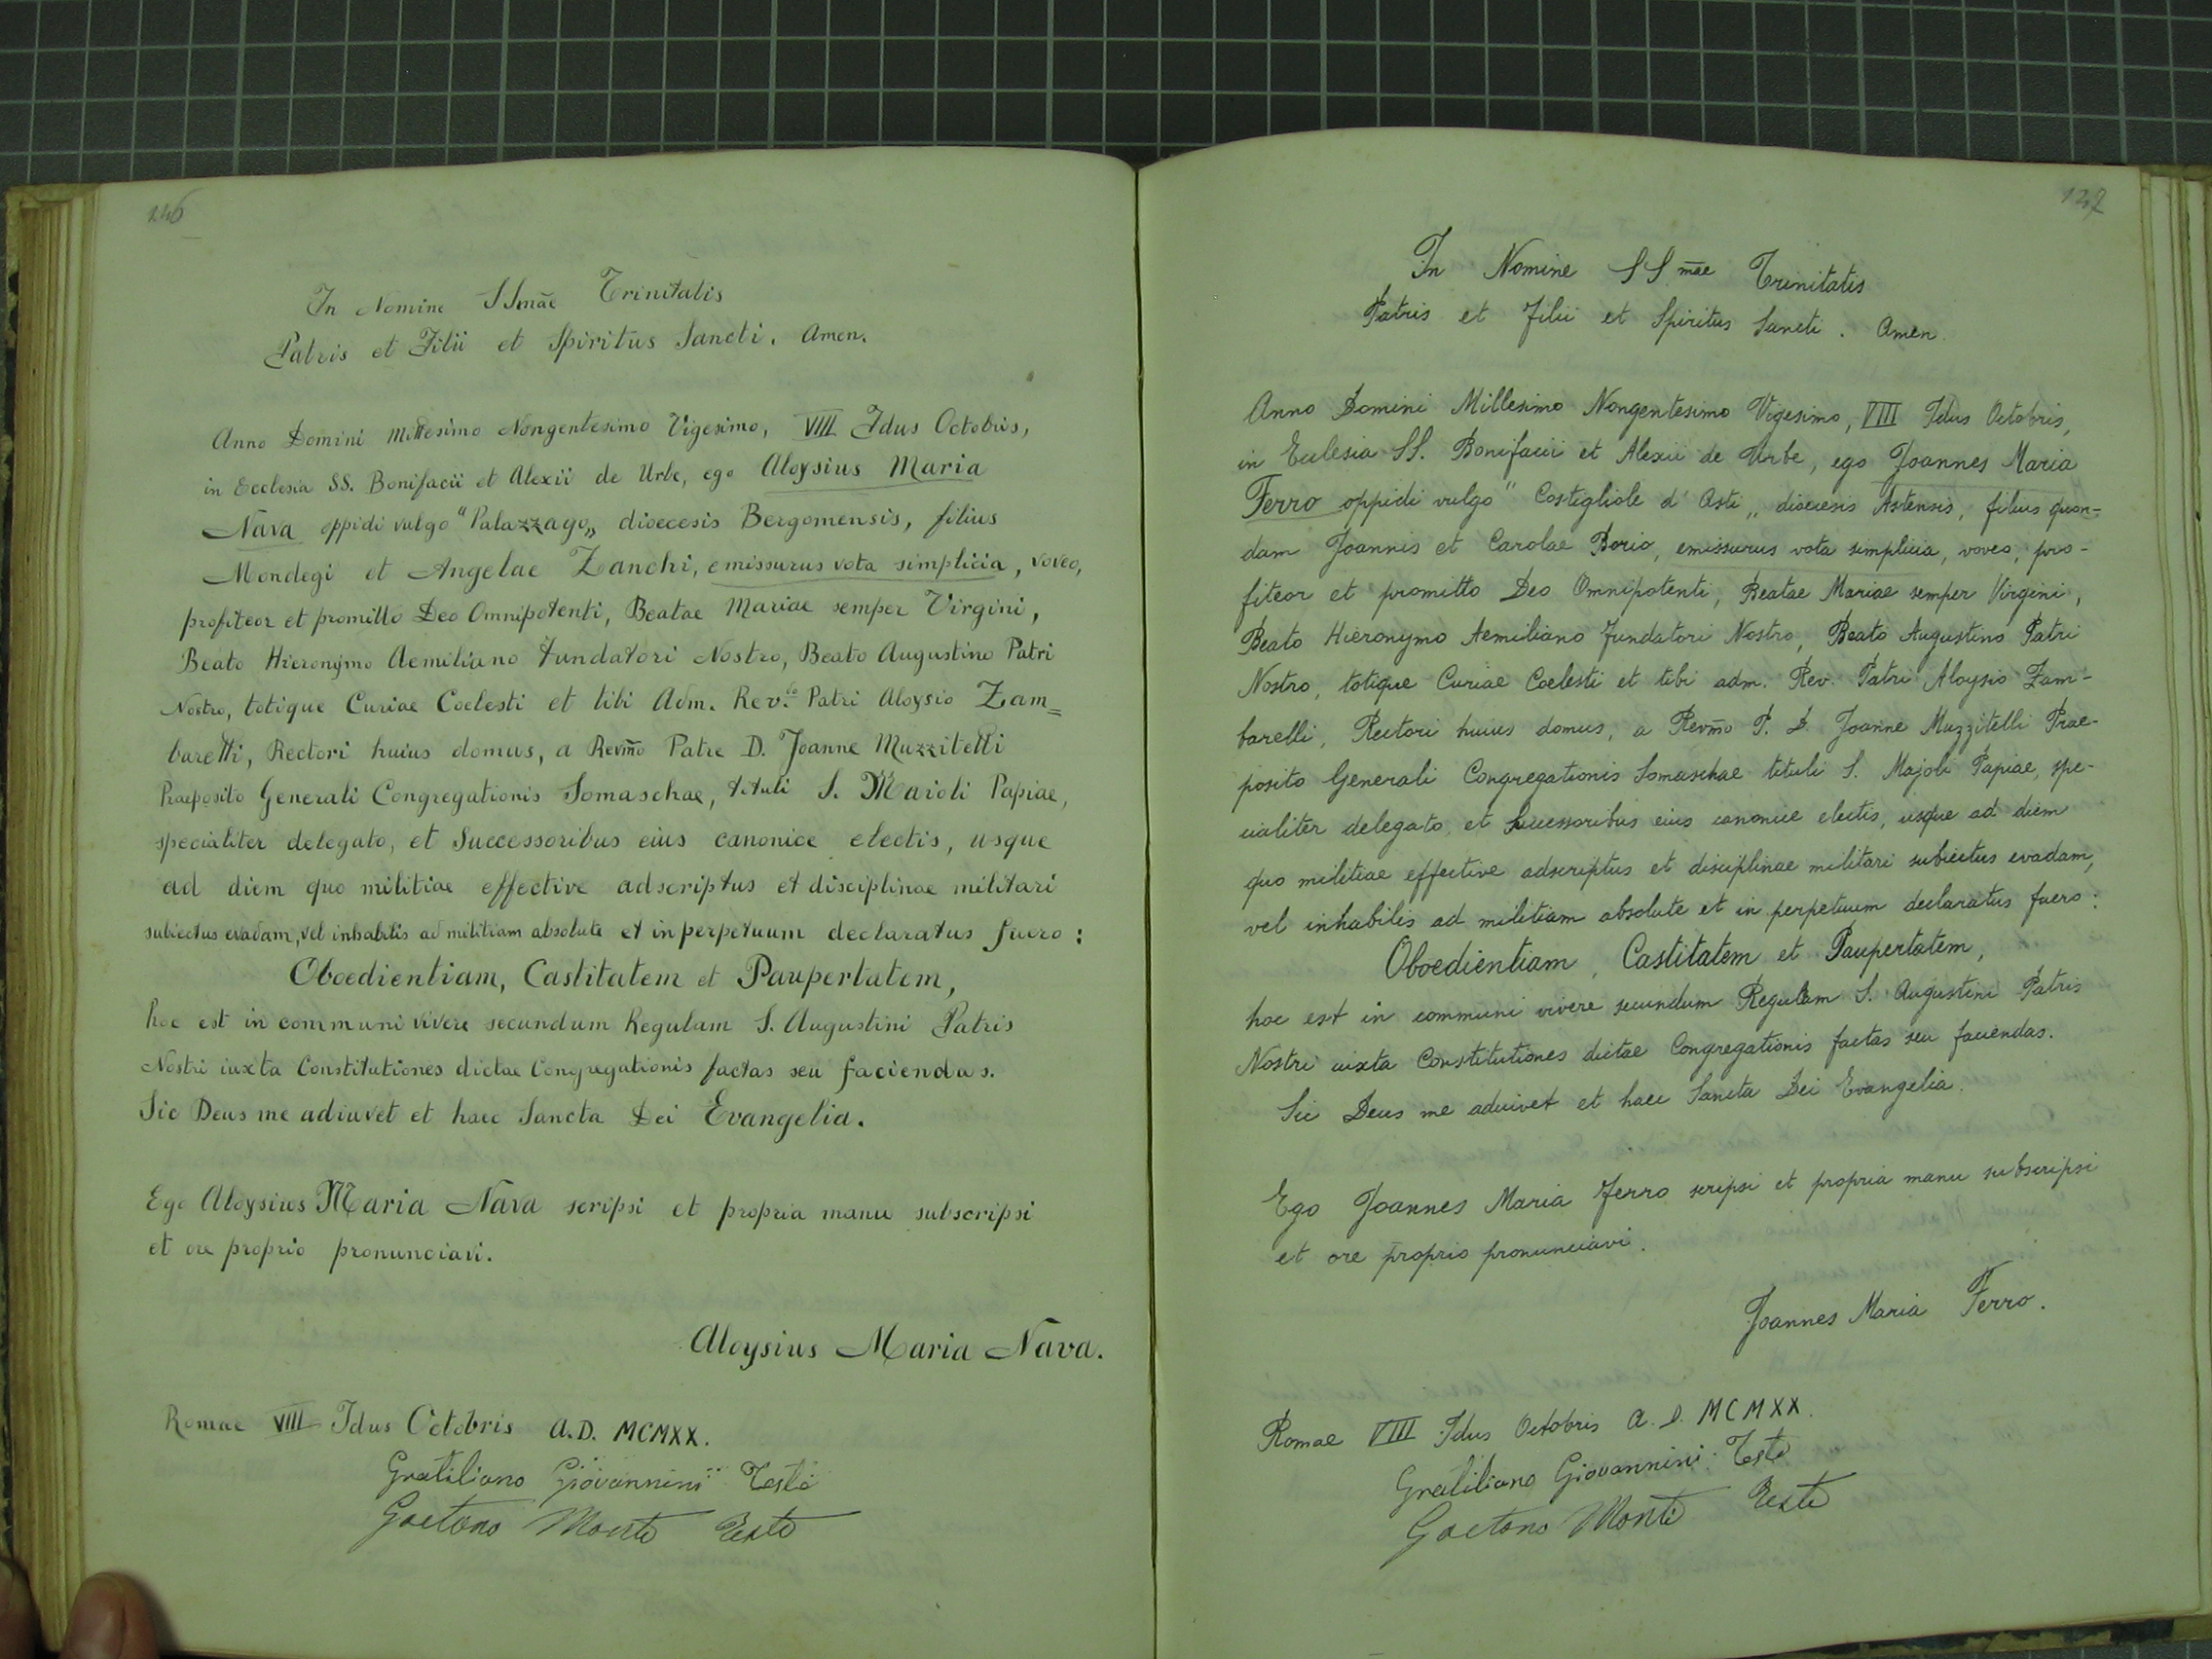 146
In Nomine SSmae Trinitatis
Patris et Filii et Spiritus Sancti. Amen.
Anno Domini Millesimo Nongentesimo Vigesimo, VIII Idus Octobris,
in Ecclesia SS. Bonifacii et Alexii de Urbe, ego Aloysius Maria
Nava oppidi vulgo "Palazzago„ dioecesis Bergomensis, filius
Mondegi et Angelae Zanchi, emissurus vota simplicia, voveo,
profiteor et promitto Deo Omnipotenti, Beatae Mariae semper Virgini,
Beato Hieronymo Aemiliano Fundatori Nostro, Beato Augustino Patri
Nostro, totique Curiae Coelesti et tibi Adm. Rev.do Patri Aloysio Zam=
barelli, Rectori huius domus, a Revm̄o Patre D. Joanne Muzzitelli
Praeposito Generali Congregationis Somaschae, tituli S. Maioli Papiae,
specialiter delegato, et Successoribus eius canonice electis, usque
ad diem quo militiae effective adscriptus et disciplinae militari
subiectus evadam, vel inhabilis ad militiam absolute et in perpetuum declaratus fuero:
Oboedientiam, Castitatem et Paupertatem,
hoc est in communi vivere secundum Regulam S. Augustini Patris
Nostri iuxta Constitutiones dictae Congregationis factas seu faciendas.
Sic Deus me adiuvet et haec Sancta Dei Evangelia.
Ego Aloysius Maria Nava scripsi et propria manu subscripsi
et ore proprio pronunciavi.
Aloysius Maria Nava.
Romae VIII Idus Octobris A.D. MCMXX.
Gratiliano Giovannini Teste
Gaetano Monti Teste
147
In Nomine SS m̄ae Trinitatis
Patris et Filii et Spiritus Sancti. Amen
Anno Domini Millesimo Nongentesimo Vigesimo, VIII Idus Octobris,
in Ecclesia SS. Bonifacii et Alexii de Urbe, ego Joannes Maria
Ferro oppidi vulgo "Costigliole d'Asti„ dioecesis Astensis, filius quon-
dam Joannis et Carolae Borio, emissurus vota simplicia, voveo, pro-
fiteor et promitto Deo Omnipotenti, Beatae Mariae semper Virgini,
Beato Hieronymo Aemiliano Fundatori Nostro, Beato Augustino Patri
Nostro, totique Curiae Coelesti et tibi adm. Rev. Patri Aloysio Zam-
barelli, Rectori huius domus, a Revm̄o P. D. Joanne Muzzitelli Prae-
posito Generali Congregationis Somaschae tituli S. Majoli Papiae, spe-
cialiter delegato, et Successoribus eius canonice electis, usque ad diem
quo militiae effective adscriptus et disciplinae militari subiectus evadam,
vel inhabilis ad militiam absolute et in perpetuum declaratus fuero:
Oboedientiam, Castitatem et Paupertatem,
hoc est in communi vivere secundum Regulam S. Augustini Patris
Nostri iuxta Constitutiones dictae Congregationis factas seu faciendas.
Sic Deus me adiuvet et haec Sancta Dei Evangelia.
Ego Joannes Maria Ferro scripsi et propria manu subscripsi
et ore proprio pronunciavi.
Joannes Maria Ferro.
Romae VIII Idus Octobris A. D. MCMXX.
Gratiliano Giovannini Teste
Gaetano Monti Teste